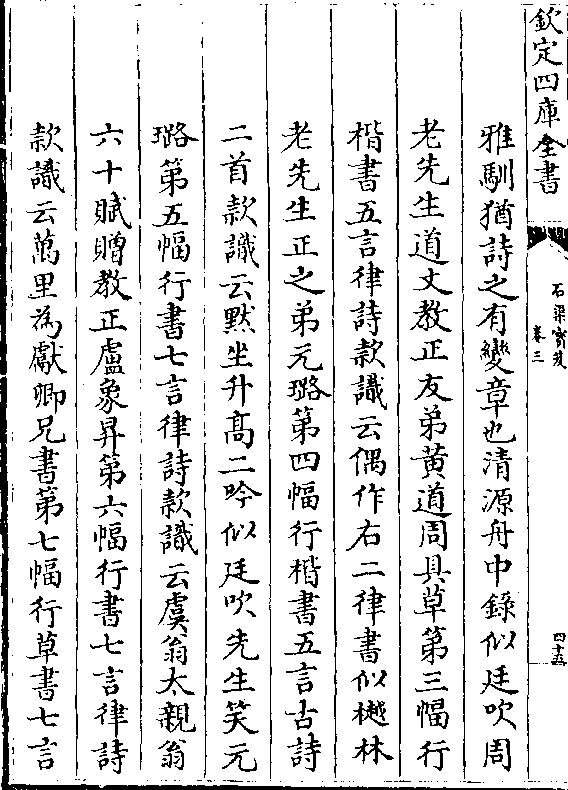 欽定四庫全書
石渠寳笈
卷三
四十五
雅馴猶詩之有變章也清源舟中錄似廷吹周
老先生道丈教正友弟黄道周具草第三幅行
楷書五言律詩款識云偶作右二律書似樾林
老先生正之弟元璐第四幅行楷書五言古詩
二首款識云黙坐升髙二吟似廷吹先生笑元
璐第五幅行書七言律詩款識云虞翁太親翁
六十賦贈教正盧象昇第六幅行書七言律詩
款識云萬里為獻卿兄書第七幅行草書七言